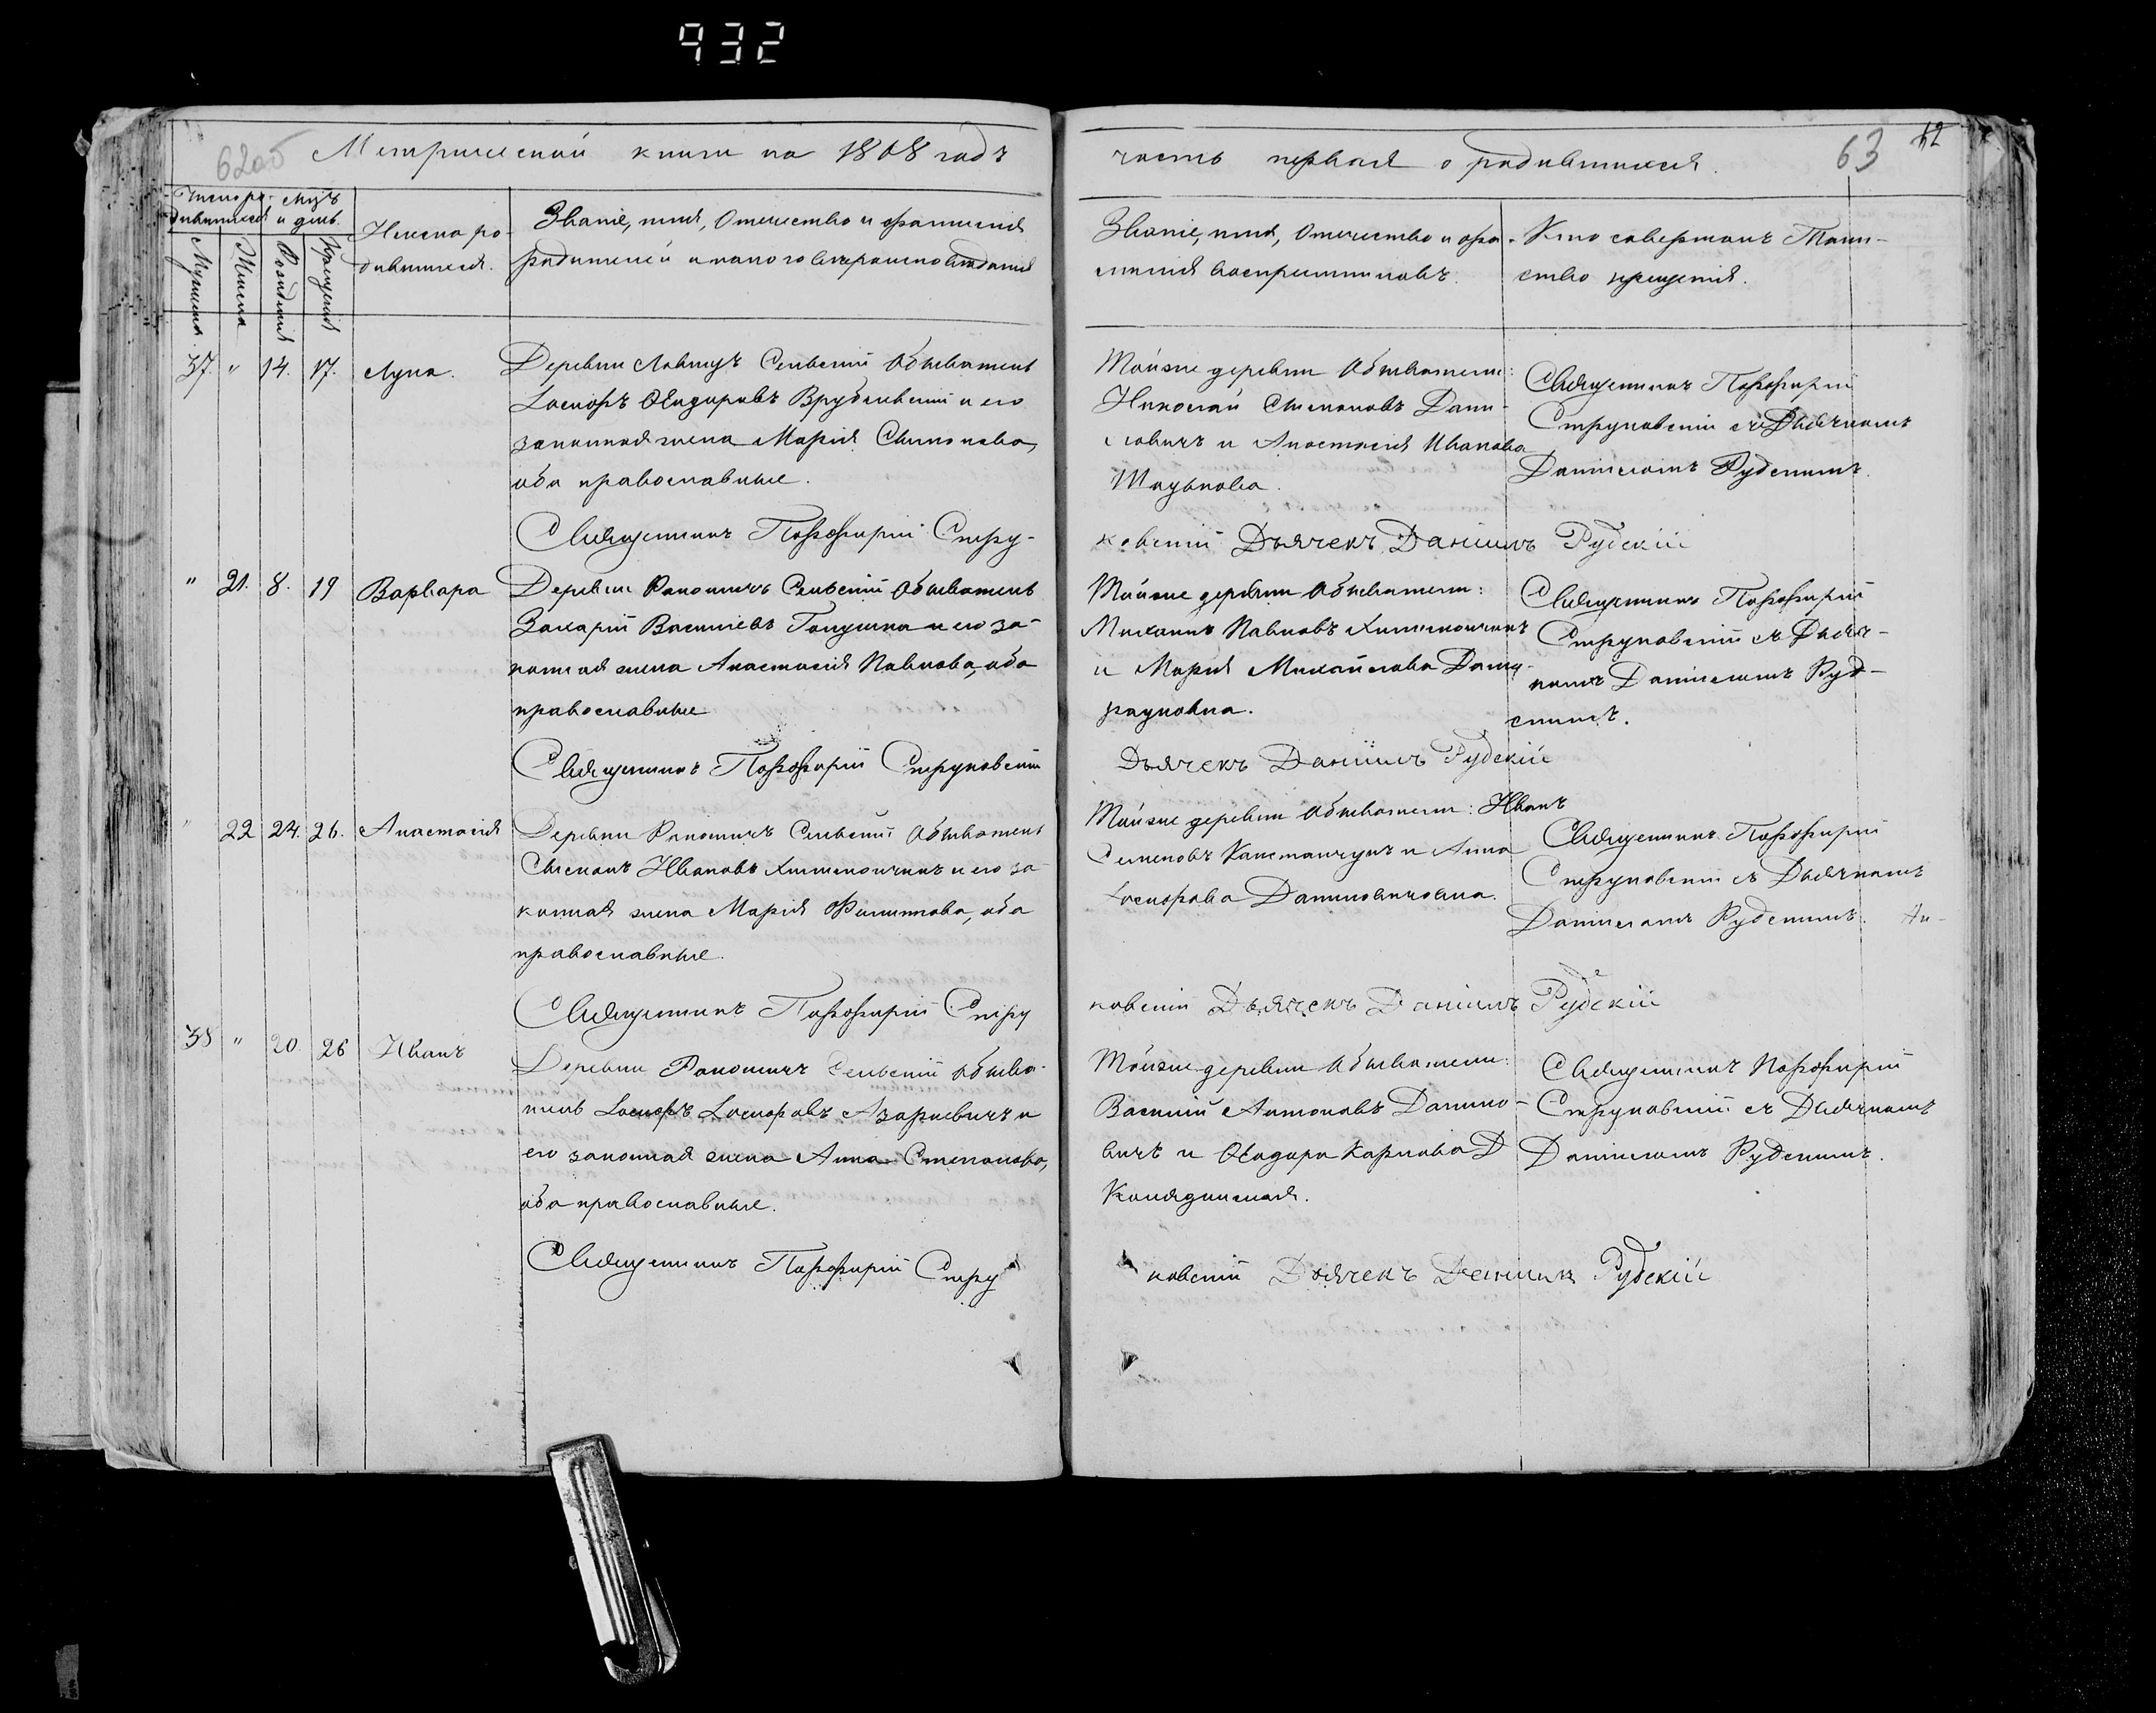 932
62об
Метрической книги на 1868 годъ
часть первая о родившихся.
63
62
Число ро-
дившихся
Мѣсяцъ
и день.
Мужеска
Женска
Рожденія
Крещенія
Имена ро-
дившихся.
Званіе, имя, Отчество и фамилія
родителей и какого вѣроисповѣданія
Званіе, имя, Отчество и фа-
милія воспріемниковъ.
Кто совершалъ Таин-
ство крещенія.
37. " 14. 17. Лука.
Деревни Сельскій Обыватель
Іосифъ Ѳеодоровъ Врублевскій и его
законная жена Марія Симонова,
оба православные.
Тойже деревни Обыватели:
Николай Степановъ Дани-
ловичъ и Анастасія Иванова
Священникъ Порфирій
Струковскій съ Дьячкомъ
Даніиломъ Рудскимъ.
Священникъ Порфирій Стру-
ковскій Дьячекъ Даніилъ Рудскій
" 21. 8. 19 Варвара
Деревни Сельскій Обыватель
Захарій Васильевъ и его за-
конная жена Анастасія Павлова, оба
православные
Тойже деревни Обыватели:
Михаилъ Павловъ
и Марія Михайлова
Священникъ Порфирій
Струковскій съ Дьяч-
комъ Даніиломъ Руд-
скимъ.
Священникъ Порфирій Струковскій
Дьячекъ Даніилъ Рудскій
" 22 24. 26. Анастасія
Деревни Сельскій Обыватель
Степанъ Ивановъ и его за
конная жена Марія Филиппова, оба
православные.
Тойже деревни Обыватели: Иванъ
Семеновъ и Анна
Іосифова Даниловичовна.
Священникъ Порфирій
Струковскій съ Дьячкомъ
Даніиломъ Рудскимъ.
Священникъ Порфирій Стру
ковскій Дьячекъ Даніилъ Рудскій
38 " 20. 26 Иванъ
Деревни Сельскій Обыва-
тель Іосифъ Іосифовъ Азаркевичъ и
его законная жена Анна Степанова,
оба православные.
Тойже деревни Обыватели:
Василій Антоновъ Данило-
вичъ и Ѳеодора Карпова Д
Священникъ Порфирій
Струковскій съ Дьячкомъ
Даніиломъ Рудскимъ.
Священникъ Порфирій Стру
ковскій Дьячекъ Даніилъ Рудскій